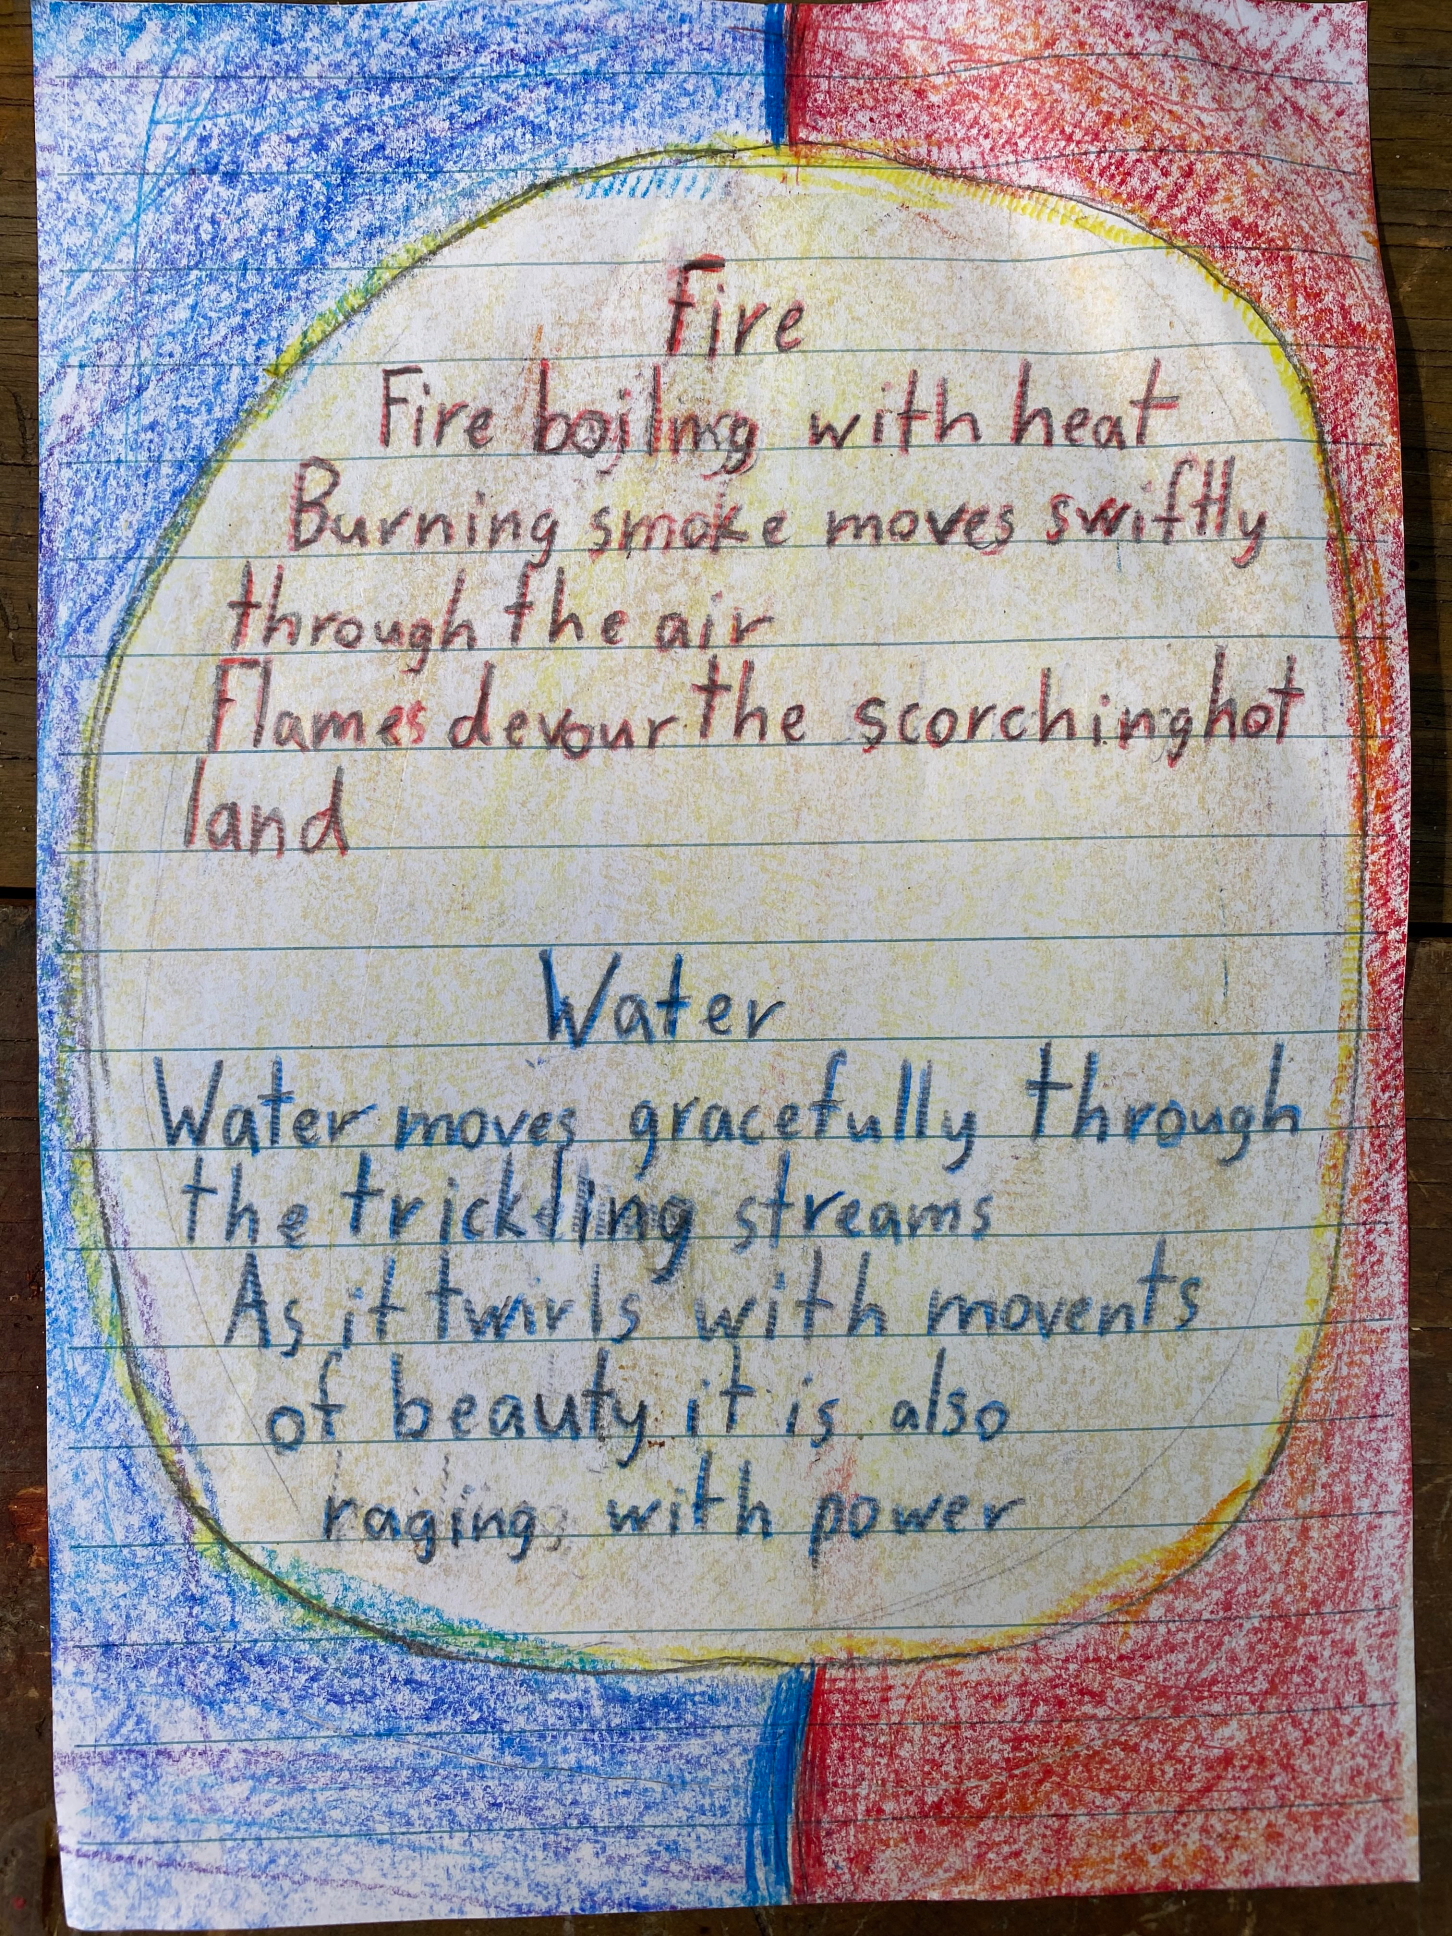 Fire
Fire boiling with heat
Burning smoke moves swiftly
through the air
Flames devour the scorching hot
land
Water
Water moves gracefully through
the trickling streams
As it twirls with movents
of beauty it is also
raging with power